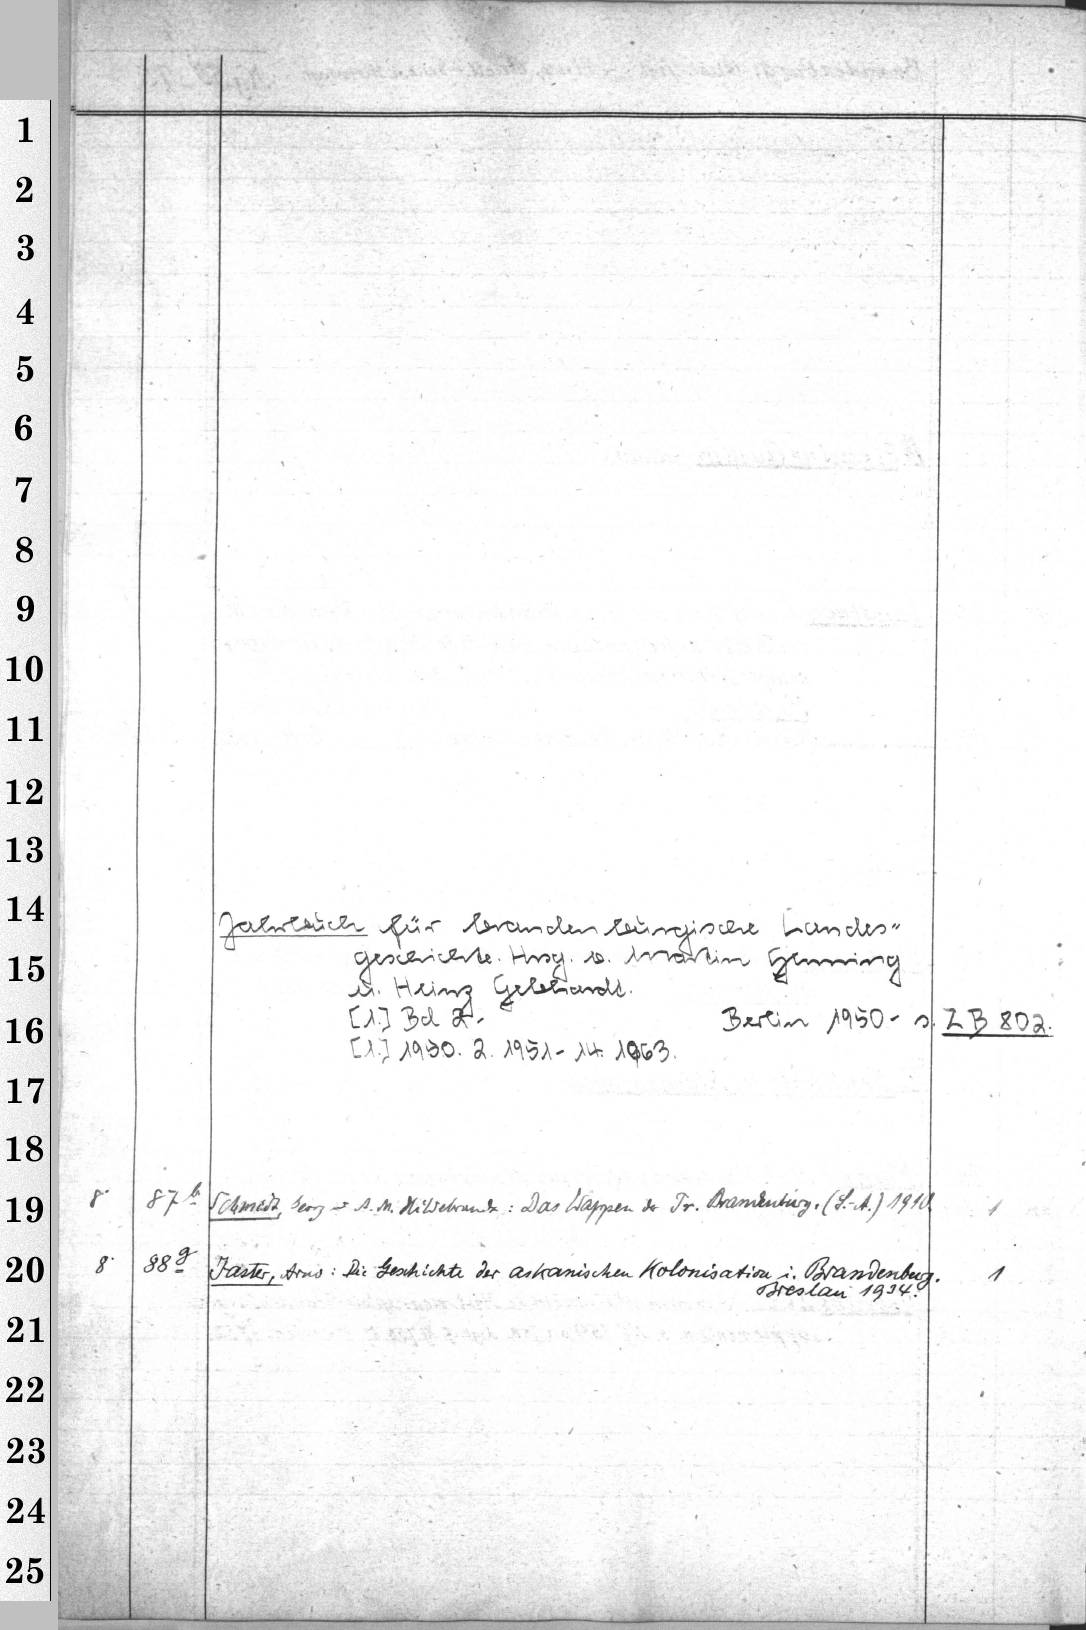 1
2
3
4
5
6
7
8
9
10
11
12
13
14
15
16
17
18
19
20
21
22
23
24
25
Jahrbuch für brandenburgische Landes-
geschichte. Hrsg. v. Martin Henning
u. Heinz Gebhardt.
[1.] Bd 2.- Berlin 1950- s. ZB 802.
[1.] 1950. 2. 1951- 14. 1963.
8° 87 b Schmidt, Georg u. A. M. Hildebrandt: Das Wappen der Pr. Brandenburg. (S.-A.) 1910. 1
8° 88 g Jaster, Arno: Die Geschichte der askanischen Kolonisation i. Brandenburg. 1
Breslau 1934.